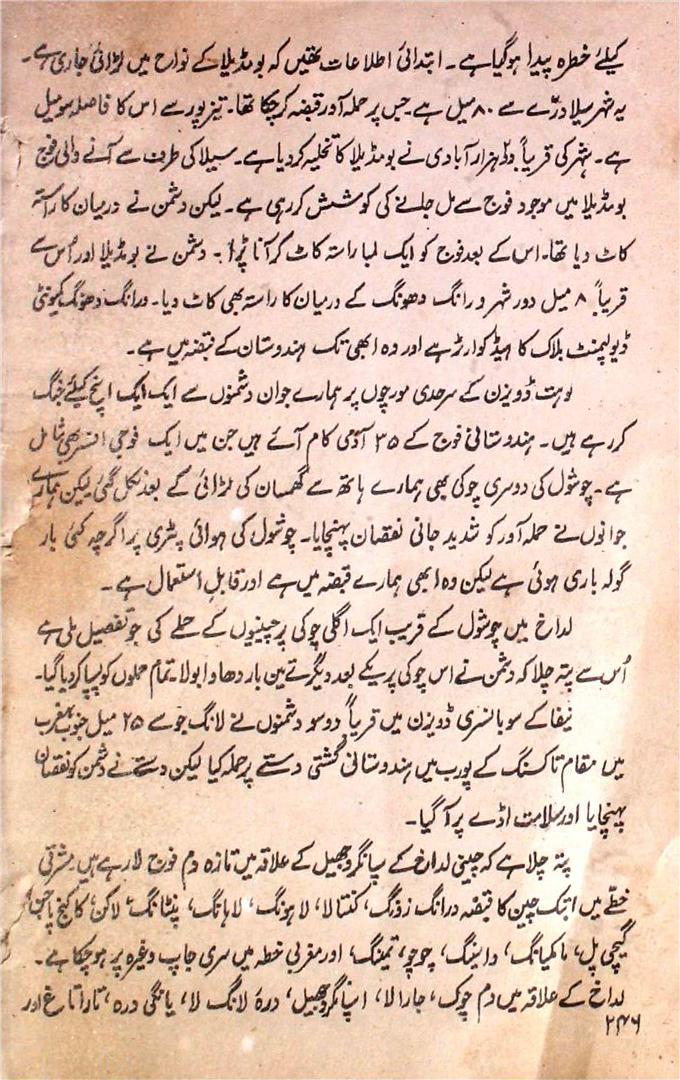 کیلئے خطرہ پیدا ہوگیا ہے۔ ابتدائی اطلاعات تھیں کہ بومڈیلا کے نواح میں لڑائی جاری ہے۔
یہ شہر سیلا درّے سے ۸۰ میل ہے۔ جس پر حملہ آور قبضہ کرچکا تھا۔ تیزپور سے اس کا فاصلہ سو میل
ہے۔ شہر کی قریباً ہزار آبادی نے بومڈیلا کا تخلیہ کردیا ہے۔ سیلا کی طرف سے آنے والی فوج
بومڈیلا میں موجود فوج سے مل جانے کی کوشش کررہی ہے۔ لیکن دشمن نے درمیان کا راستہ
کاٹ دیا تھا۔ اس کے بعد فوج کو ایک لمبا راستہ کاٹ کر آنا پڑا۔ دشمن نے بومڈیلا اور اُس سے
قریباً ۸ میل دور شہر و رانگ دھونگ کے درمیان کا راستہ بھی کاٹ دیا۔ ورانگ دھونگ کمیونٹی
ڈیولپمنٹ بلاک کا ہیڈ کوارٹر ہے اور وہ ابھی تک ہندوستان کے قبضہ میں ہے۔
لوہت ڈویزن کے سرحدی مورچوں پر ہمارے جوان دشمنوں سے ایک ایک اِنچ کیلئے جنگ
کررہے ہیں۔ ہندوستانی فوج کے ۳۵ آدمی کام آئے ہیں جن میں ایک فوجی افسر بھی شامل
ہے۔ چوشول کی دوسری چوکی بھی ہمارے ہاتھ سے گھمسان کی لڑائی کے بعد نکل گئی لیکن ہمارے
جوانوں نے حملہ آور کو شدید جانی نقصان پہنچایا۔ چوشول کی ہوائی پٹری پر اگرچہ کئی بار
گولہ باری ہوئی ہے لیکن وہ ابھی ہمارے قبضہ میں ہے اور قابلِ استعمال ہے۔
لداخ میں چوشول کے قریب ایک اگلی چوکی پر چینیوں کے حملے کی جو تفصیل ملی ہے
اُس سے پتہ چلا کہ دشمن نے اس چوکی پر یکے بعد دیگرے تین بار دھاوا بولا۔ تمام حملوں کو پسپا کردیا گیا۔
نیفا کے سوبانسری ڈویزن میں قریباً دوسو دشمنوں نے لانگ جو سے ۲۵ میل جنوب مغرب
میں مقام تاکسنگ کے پورب میں ہندوستانی گشتی دستے پر حملہ کیا لیکن دستے نے دشمن کو نقصان
پہنچایا اور سلامت اڈے پر آگیا۔
پتہ چلا ہے کہ چینی لداخ کے سپانگر جھیل کے علاقہ میں تازہ دم فوج لارہے ہیں مشرقی
خطّے میں ابتک چین کا قبضہ درانگ زونگ، کنتالا، لاہونگ، لاہانگ، پنٹانگ، لاکن،
گیچی پل، ماکمیانگ، واینگ، چوچو، تیمنگ، اور مغربی خطہ میں سری جاپ وغیرہ پر ہوچکا ہے۔
لداخ کے علاقہ میں دم چوک، جارالا، اسپانگر جھیل، درۂ لانگ لا، یانگی درہ، تاراتاغ اور
۲۴۶